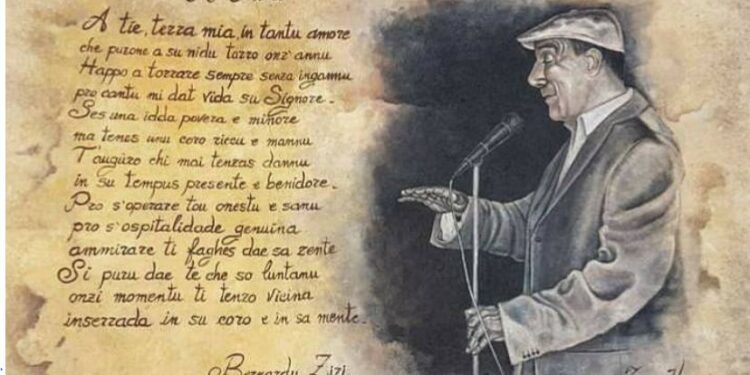 A tie, terra mia, in tantu amore
che puzone a su nidu torro onz'annu
Happo a torrare sempre senza ingannu
pro cantu mi dat vida su Signore.
Ses una idda povera e minore
ma tenes unu coro riccu e mannu
T'augùro chi mai tenzas dannu
in su tempus presente e benidore.
Pro s'operare tou onestu e sanu
pro s'ospitalidade genuina
ammirare ti faghes dae sa zente
Si puru dae te che so luntanu
onzi momentu ti tenzo vicina
inserrada in su coro e in sa mente.
Bernardu Zizi